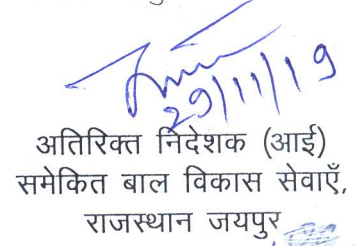 29/11/19
अतिरिक्त निदेशक (आई)
समेकित बाल विकास सेवाएँ,
राजस्थान जयपुर